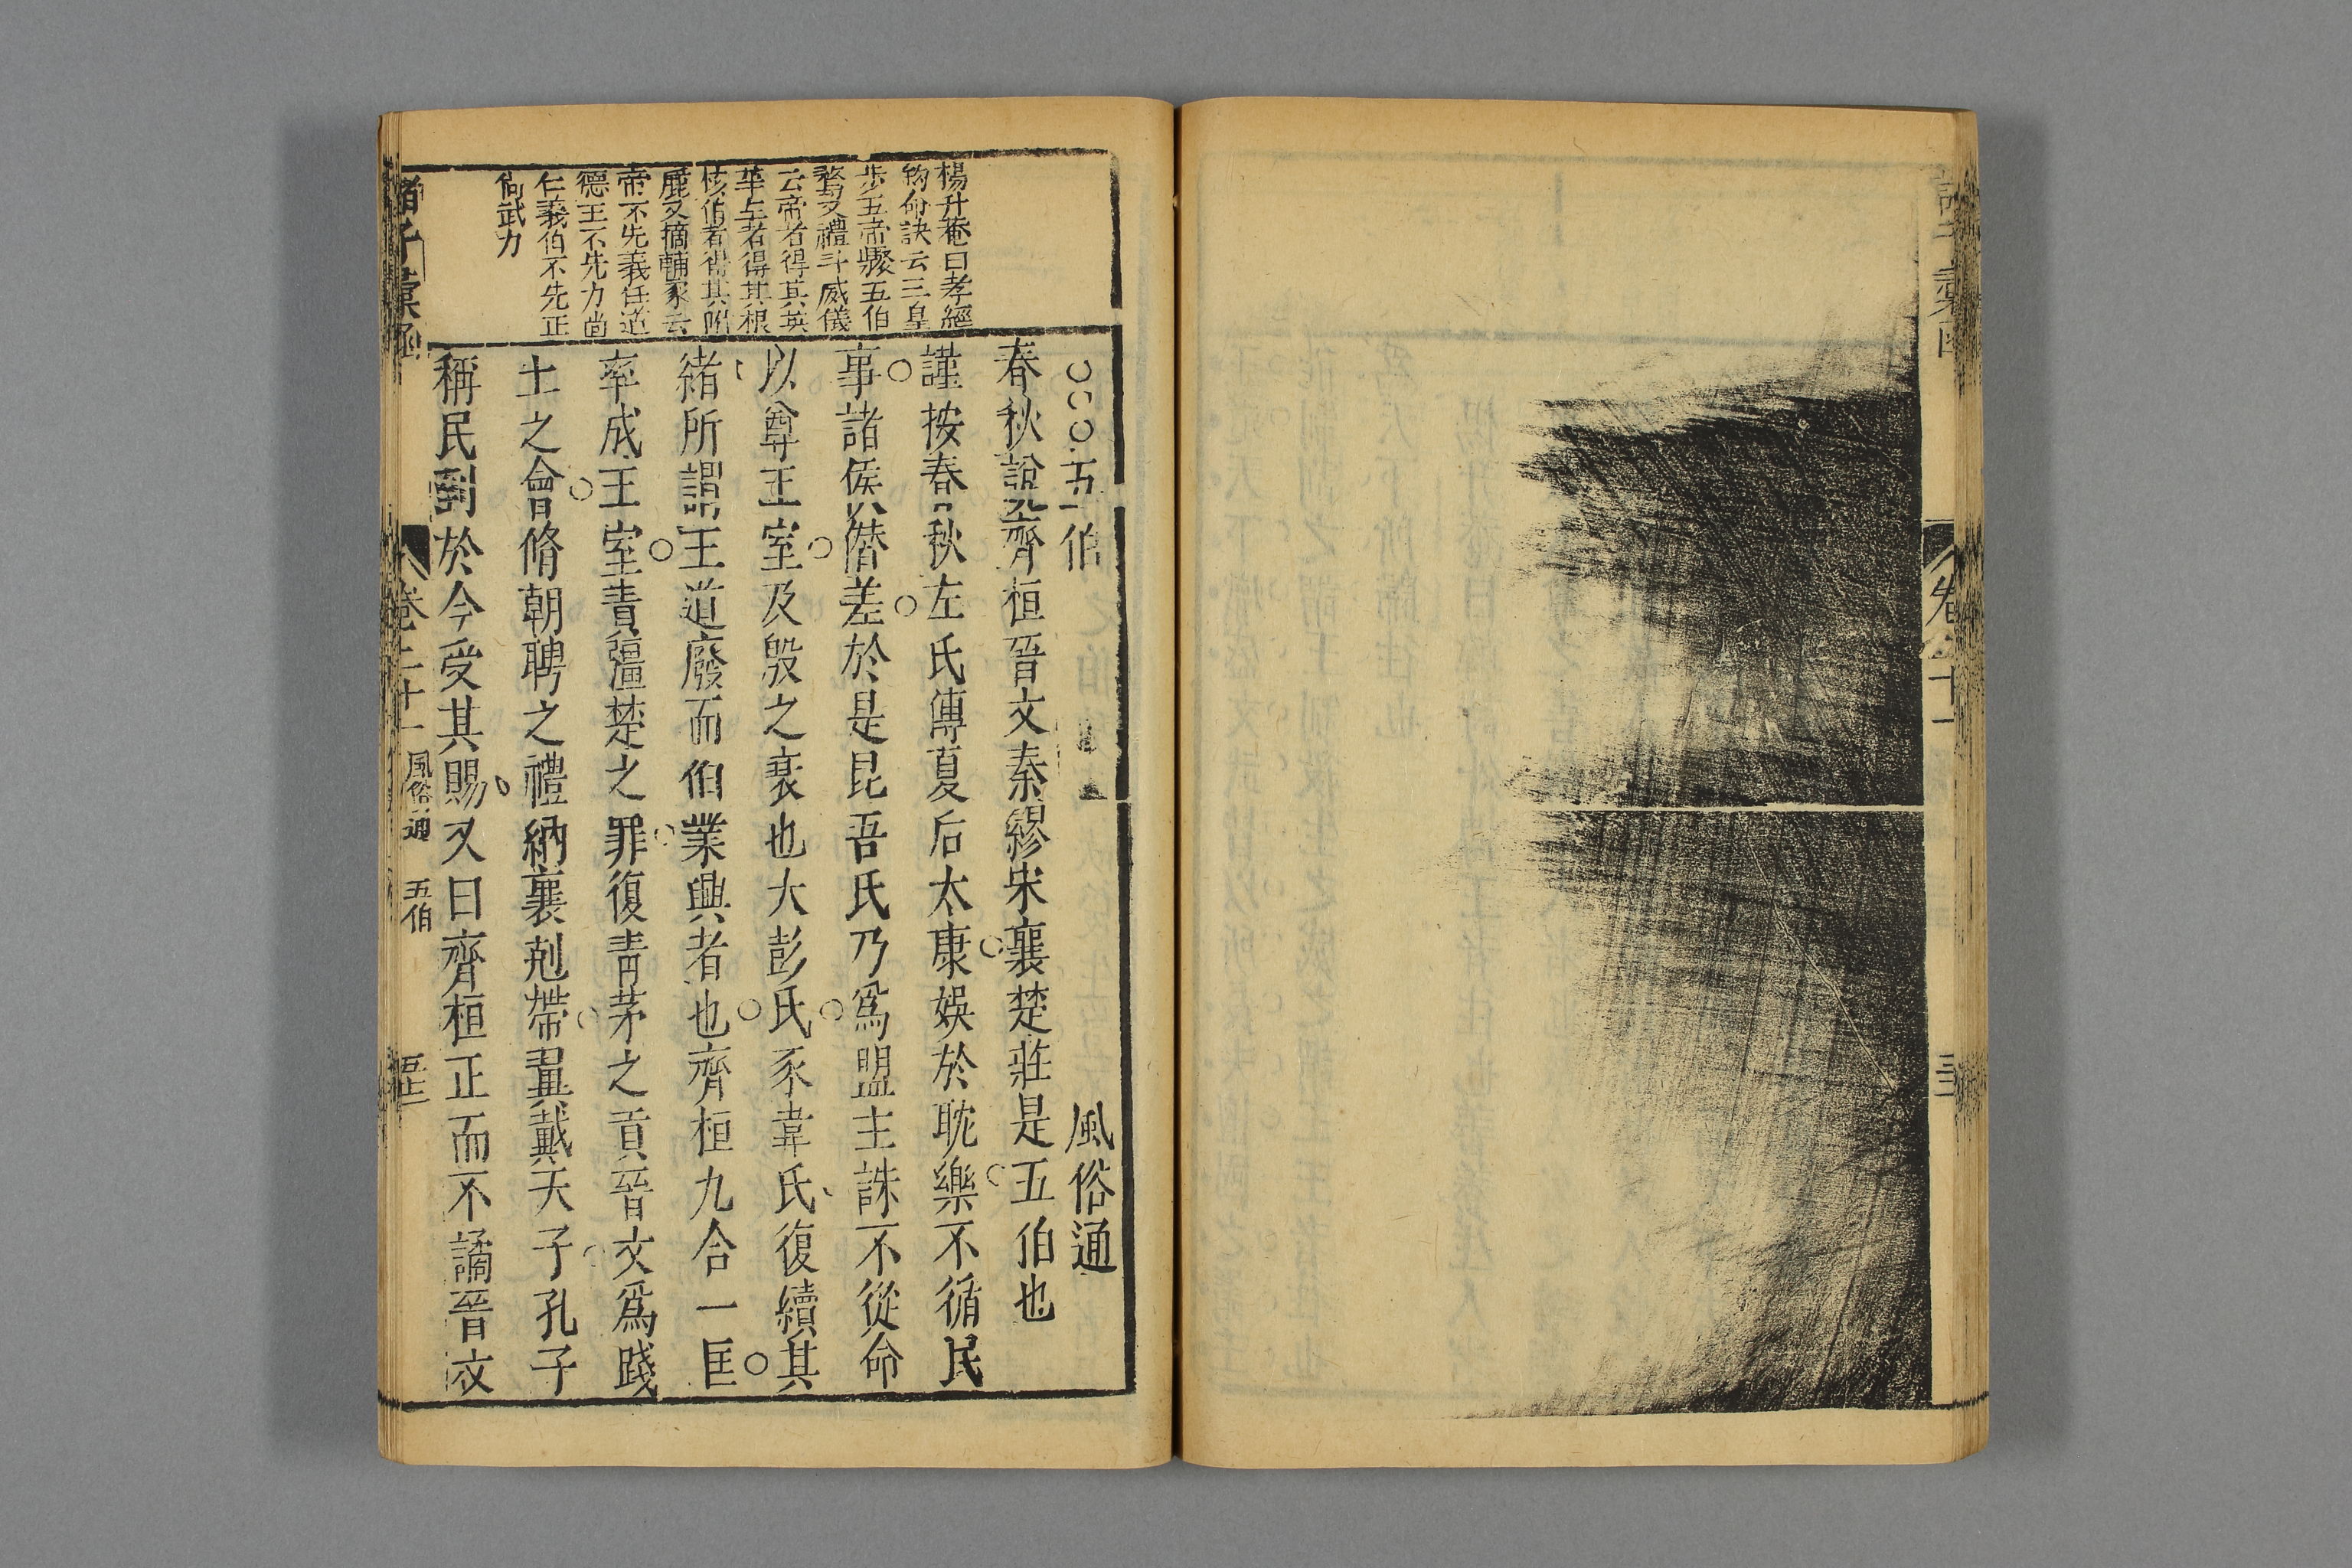 五伯
風俗通
春秋說齊桓晉文秦繆宋襄楚莊是五伯也
謹按春秋左氏傳夏后太康娛於耽樂不循民
事諸侯僭差於是昆吾氏乃爲盟主誅不從命
以尊王室及殷之衰也大彭氏豕韋氏復續其
緒所謂王道廢而伯業興者也齊桓九合一匡
率成王室責彊楚之罪復菁茅之貢晉文爲踐
土之會脩朝聘之禮納襄剋帶翼戴天子孔子
稱民到於今受其賜又曰齊桓正而不譎晉文
楊升菴曰孝經
鉤命訣云三皇
步五帝驟五伯
騖又禮斗威儀
云帝者得其英
華王者得其根
核伯者得其附
鹿又摘輔象云
帝不先義任道
德王不先力尚
仁義伯不先正
尚武力
諸子彙函
卷二十一
風俗通
五伯